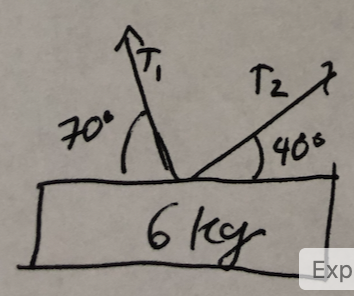 T1
T2
70°
40°
6 kg
Exp